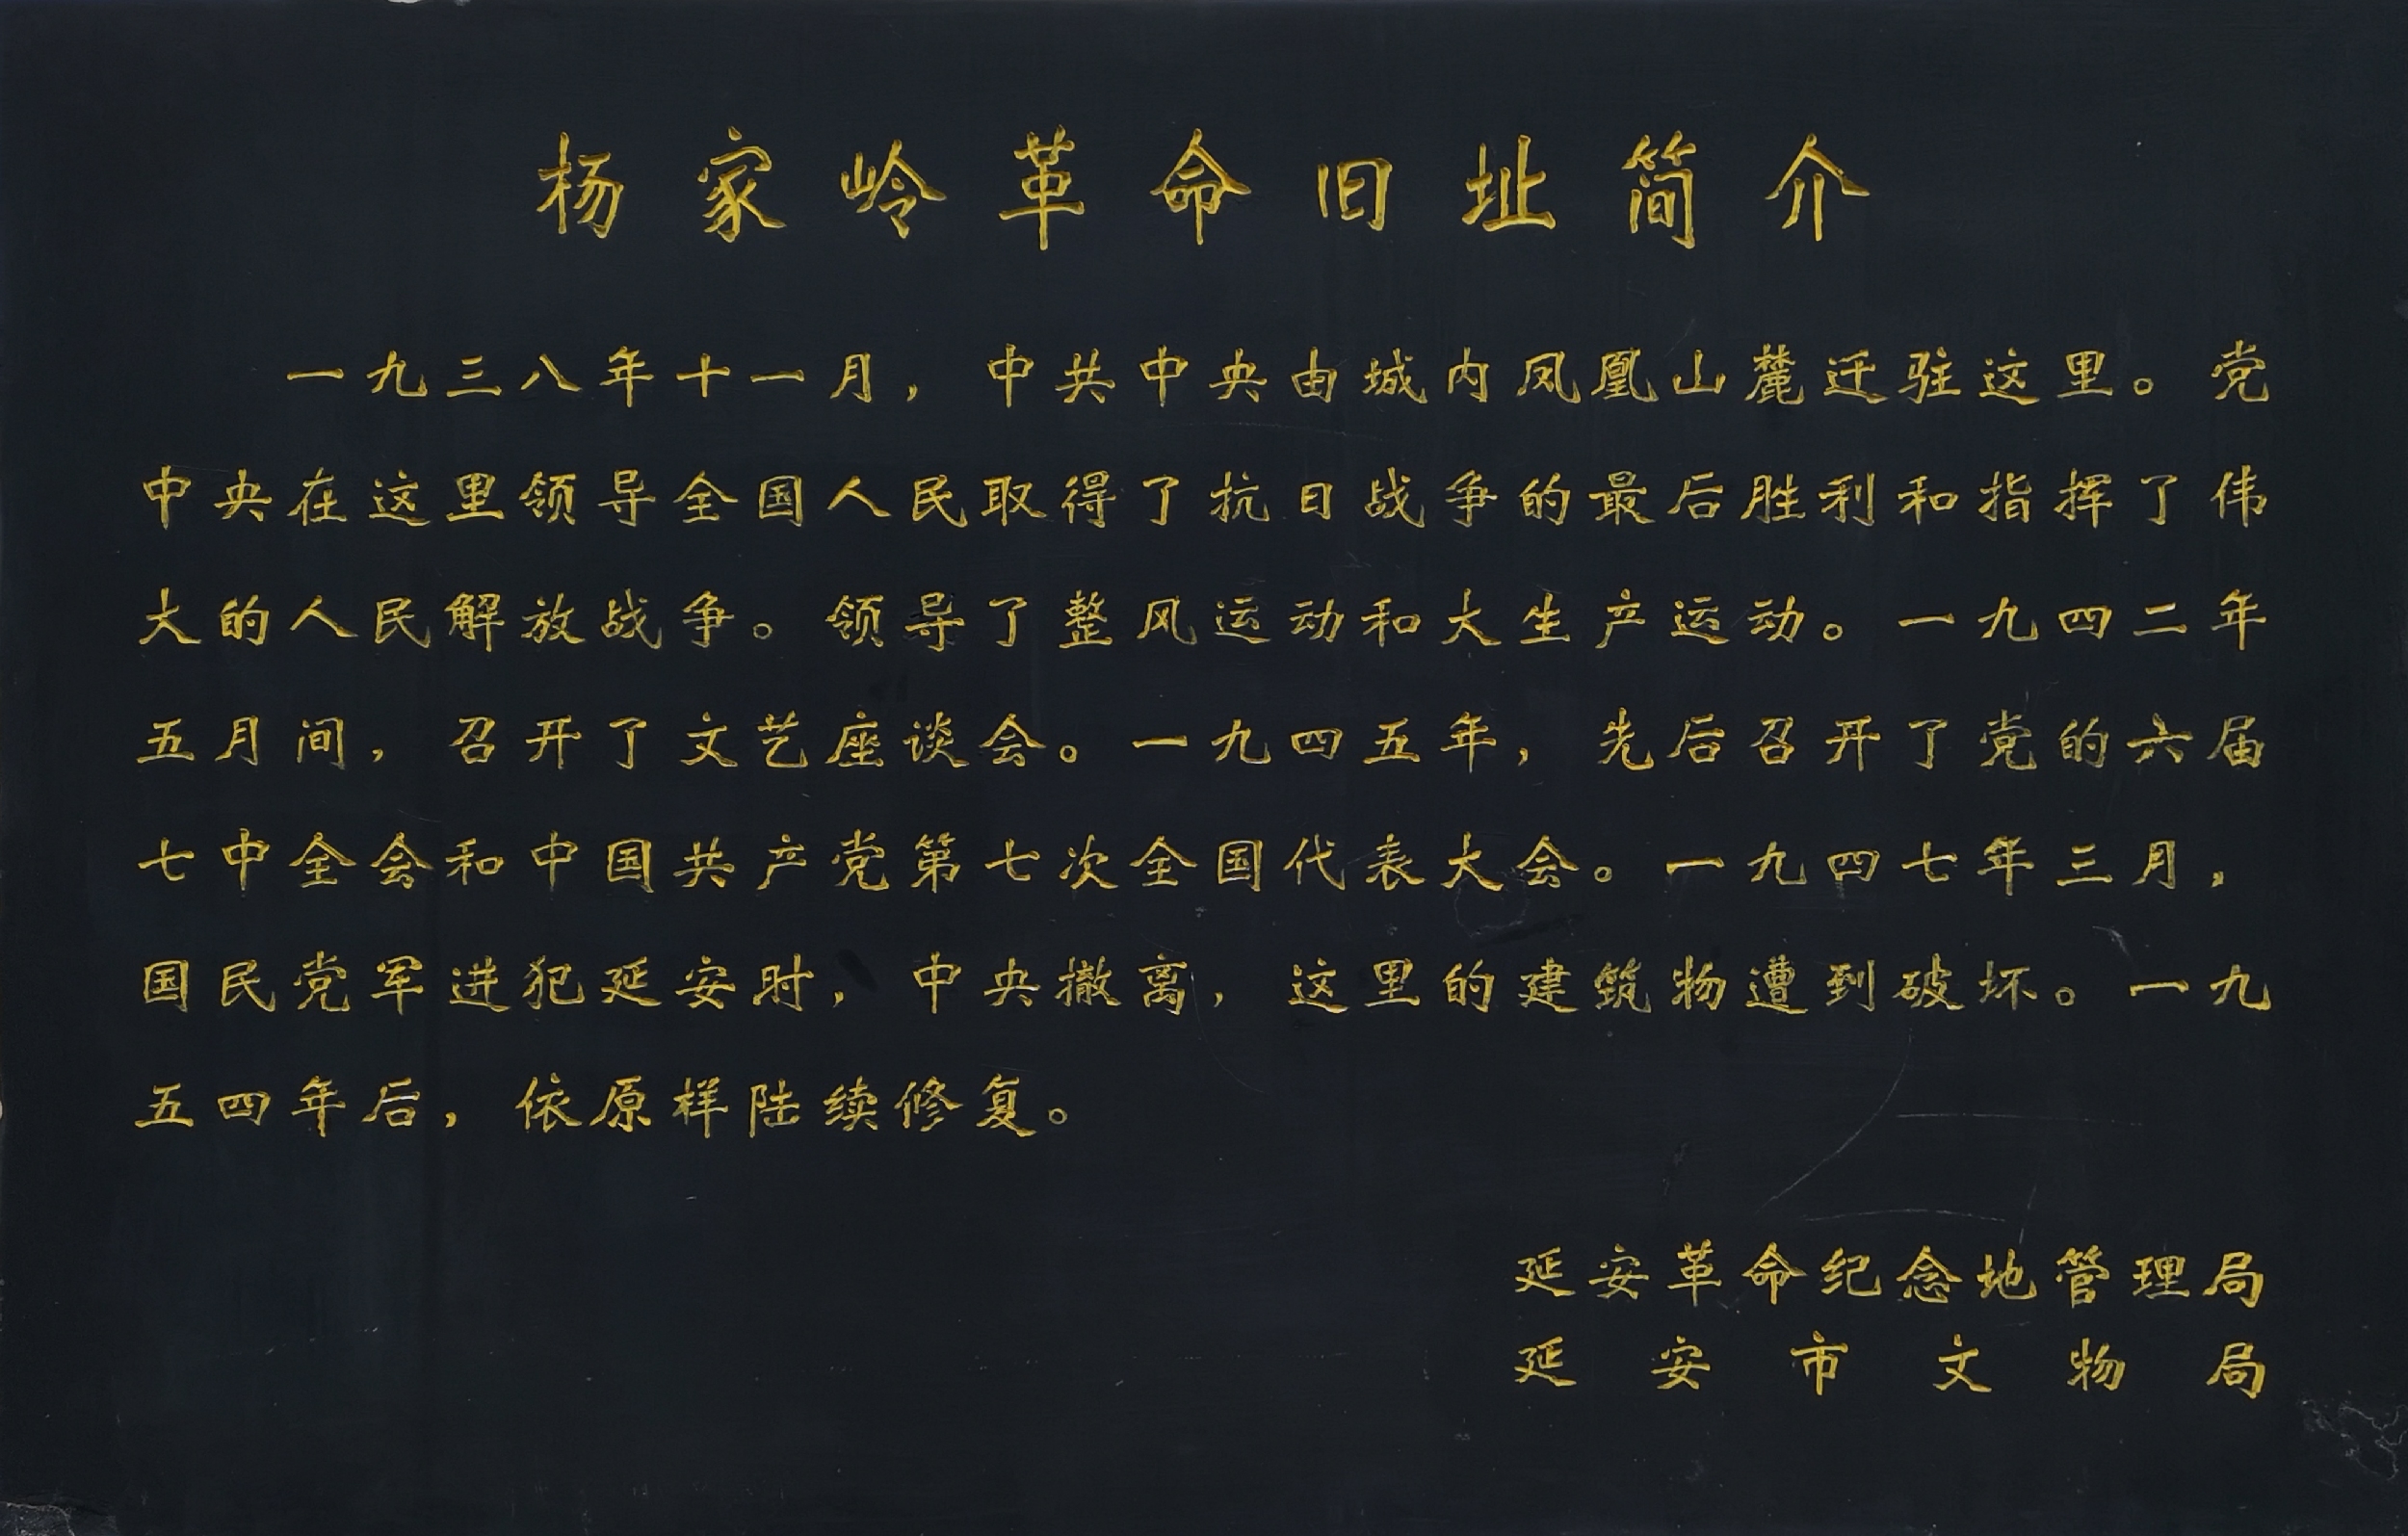 杨家岭革命旧址简介
一九三八年十一月，中共中央由城内凤凰山麓迁驻这里。党
中央在这里领导全国人民取得了抗日战争的最后胜利和指挥了伟
大的人民解放战争。领导了整风运动和大生产运动。一九四二年
五月间，召开了文艺座谈会。一九四五年，先后召开了党的六届
七中全会和中国共产党第七次全国代表大会。一九四七年三月，
国民党军进犯延安时，中央撤离，这里的建筑物遭到破坏。一九
五四年后，依原样陆续修复。
延安革命纪念地管理局
延安市文物局